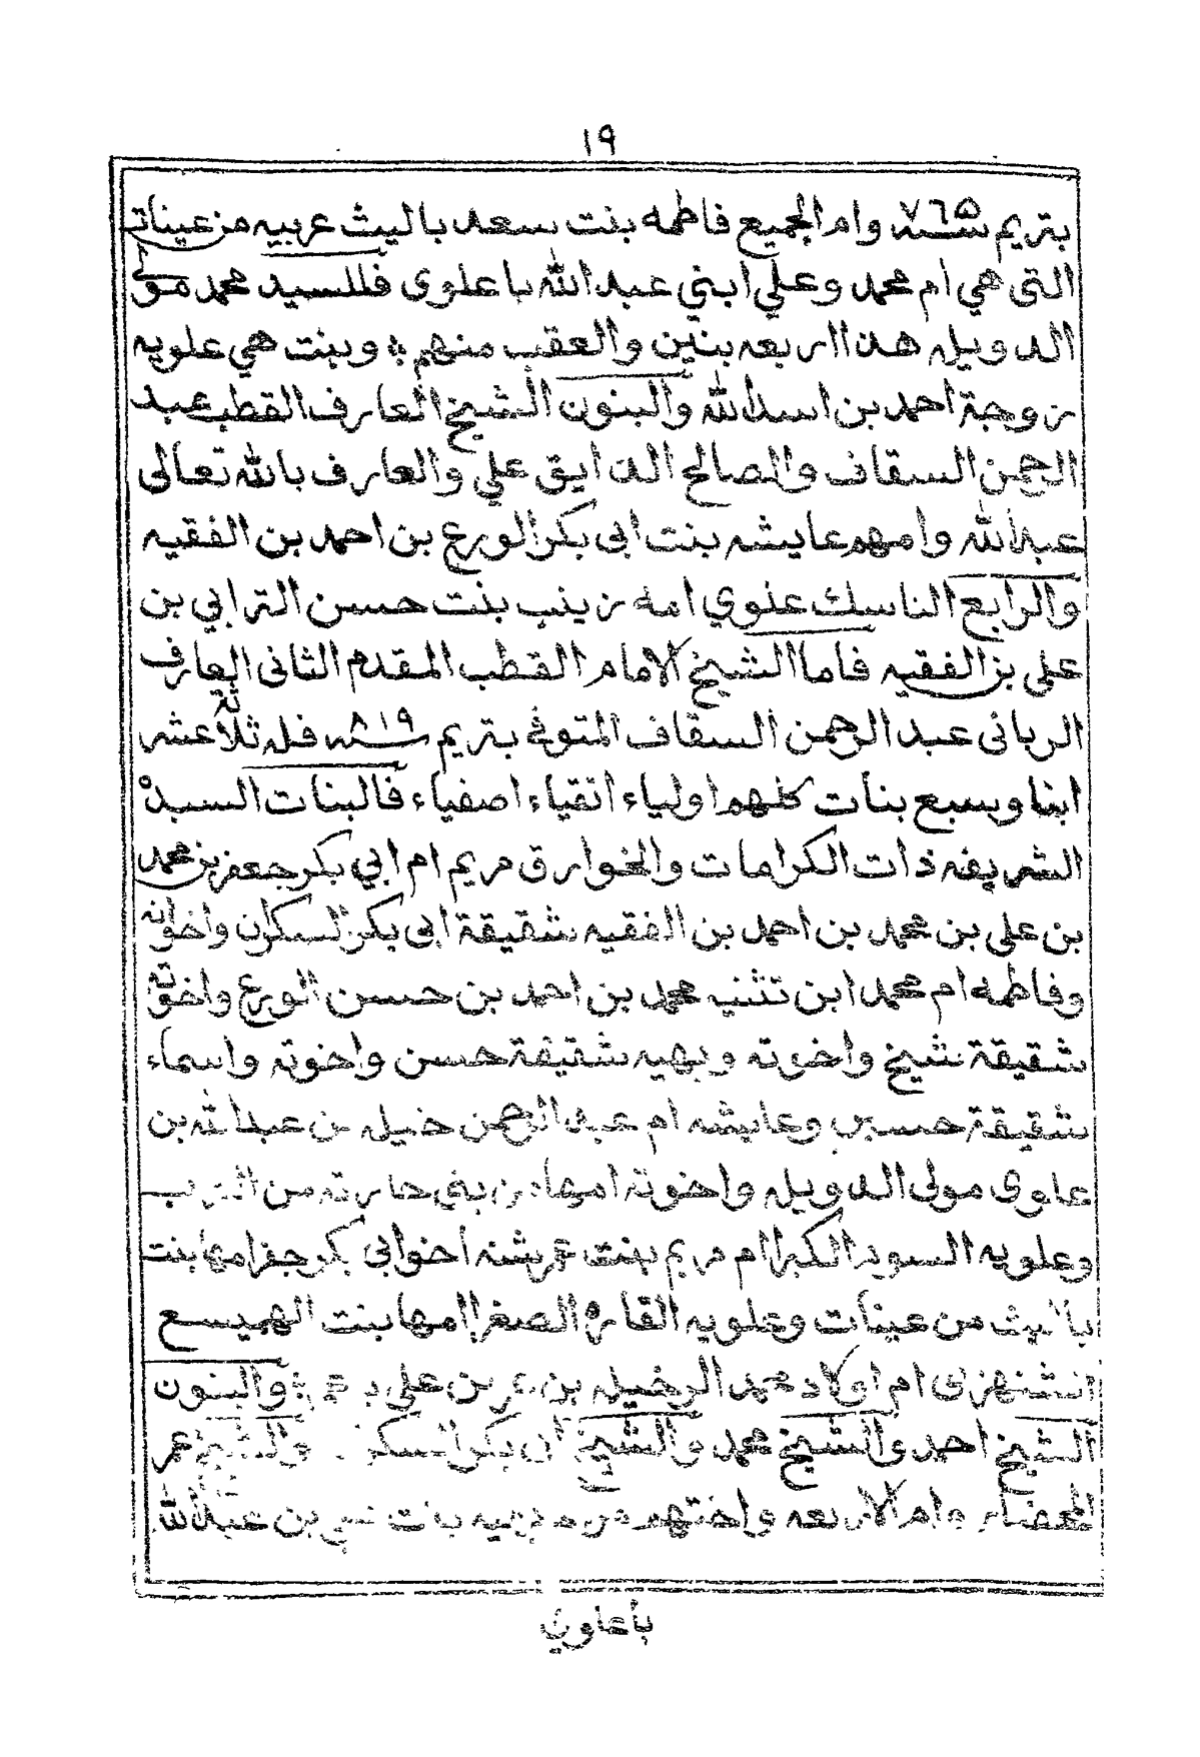 ١٩
بتريم سنة ٧٦٥ وام الجميع فاطمه بنت سعد باليث عربيه من عينات
التى هي ام محمد وعلي ابني عبد الله باعلوى فللسيد محمد مولى
الدويله هذا اربعه بنين والعقب منهم ؛ وبنت هي علويه
زوجة احمد بن اسد الله والبنون الشيخ العارف القطب عبد
الرحمن السقاف والصالح الذايق علي والعارف بالله تعالى
عبد الله وامهم عايشه بنت ابى بكر الورع بن احمد بن الفقيه
والرابع الناسك علوي امه زينب بنت حسن الترابي بن
على بن الفقيه فاما الشيخ الامام القطب المقدم الثانى العارف
الربانى عبد الرحمن السقاف المتوفى بتريم سنه ٨١٩ فله ثلاثة عشر
ابنا وسبع بنات كلهم اولياء اتقياء اصفياء فالبنات السيدة
الشريفه ذات الكرامات والخوارق مريم ام ابي بكر جعفر بن محمد
بن على بن محمد بن احمد بن الفقيه شقيقة ابى بكر السكران واخوانه
وفاطمه ام محمد ابن تثنيه محمد بن احمد بن حسن الورع واخوته
شقيقة شيخ واخوته وبهيه شقيقة حسن واخوته واسماء
شقيقة حسين وعايشه ام عبد الرحمن خيله بن عبد الله بن
علوى مولى الدويله واخوته امها من بني حارثه من
وعلويه السويد الكبرا ام مريم بنت عمر شنه اخو ابي بكر جفر امها بنت
باليث من عينات وعلويه القاره الصغرا امها بنت الهميسع
الشنهزى ام اولاد محمد الرخيله بن عمر بن علي والبنون
الشيخ احمد والشيخ محمد والشيخ ابى بكر السكران والشيخ عمر
المحضار وام الاربعه واختهم مريم بهيه بنت على بن عبد الله
باعلوي